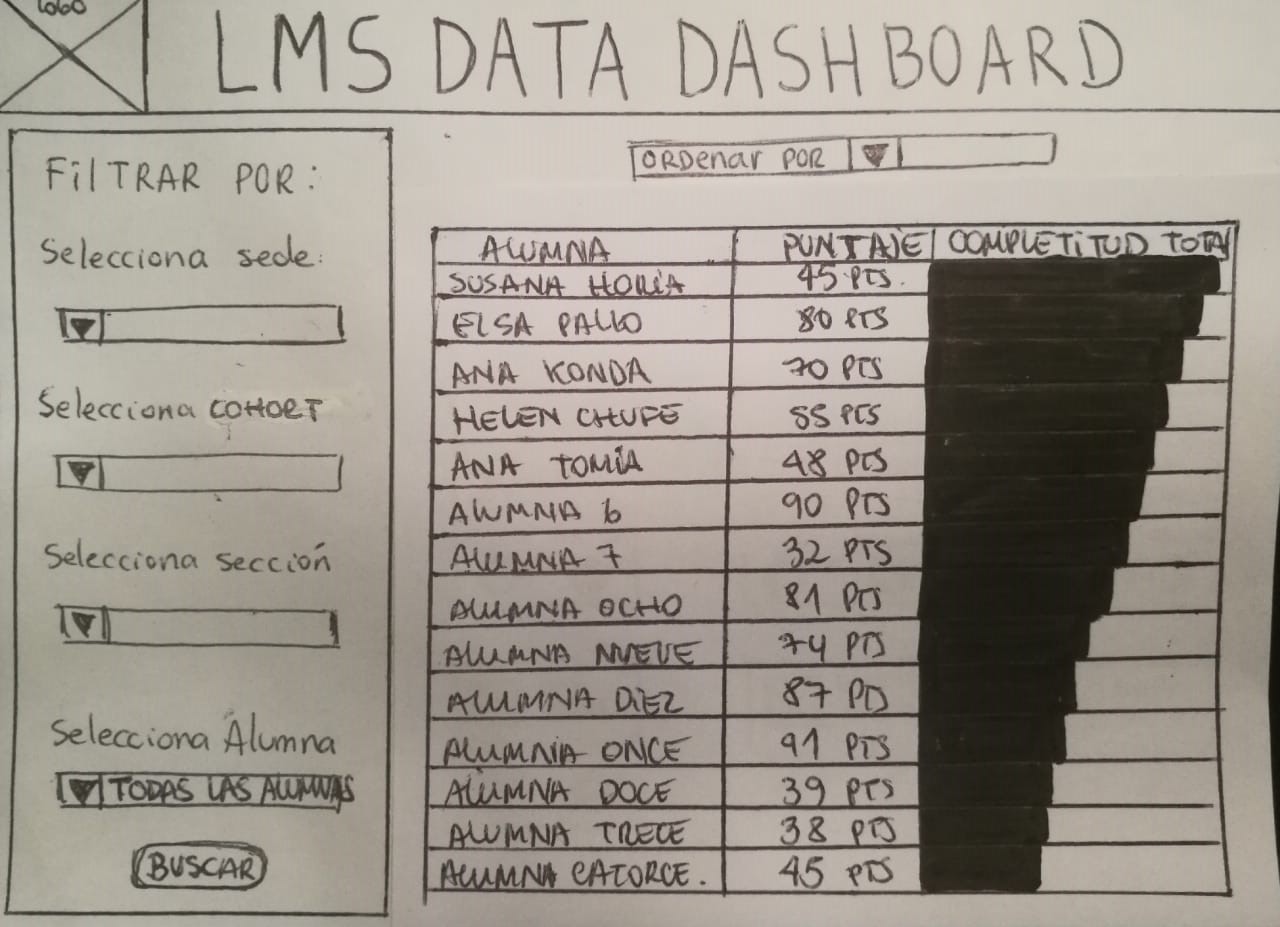 LOGO
LMS DATA DASHBOARD
FilTRAR POR:
Selecciona sede:
Selecciona COHORT
Selecciona sección
Selecciona Alumna
TODAS LAS ALUMNAS
BUSCAR
ORDenar POR
ALUMNA PUNTAJE COMPLETITUD TOTAL
SUSANA HORIA 45 PTS.
ELSA PALLO 80 PTS
ANA KONDA 70 PTS
HELEN CHUFE 55 PTS
ANA TOMÍA 48 PTS
ALUMNA 6 90 PTS
ALUMNA 7 32 PTS
ALUMNA OCHO 81 PTS
ALUMNA NUEVE 74 PTS
ALUMNA DIEZ 87 PTS
ALUMNA ONCE 91 PTS
ALUMNA DOCE 39 PTS
ALUMNA TRECE 38 PTS
ALUMNA CATORCE. 45 PTS